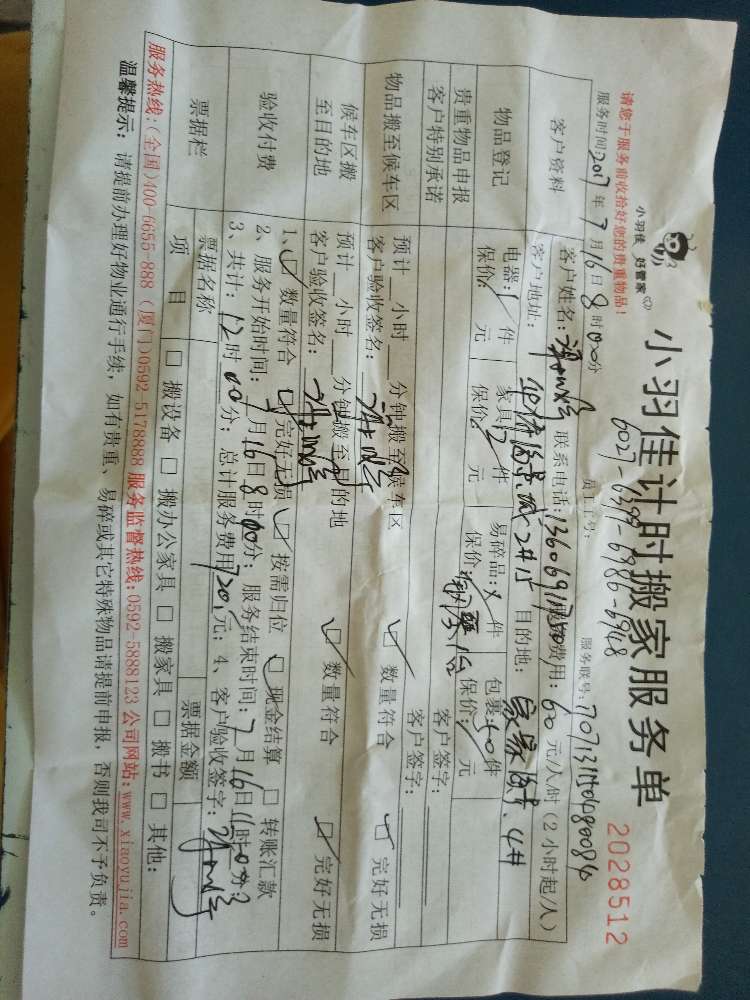 小羽佳 好管家
小羽佳计时搬家服务单
2028512
请您于服务前收拾好您的贵重物品!
员工工号: 6027-6399-6986-6948
服务时间:2017年7月16日8时00分
服务联号:
客户资料
客户姓名: 联系电话: 费用:60元/人/时(2小时起/人)
客户地址: 2#15 目的地: 4#
物品登记
电器:1件 家具:2件 易碎品: 件 包裹:40件
保价: 元 保价: 元 保价: 保价: 元
贵重物品申报
客户特别承诺
客户签字:
客户签字:
物品搬至候车区
预计__小时__分钟搬至候车区
客户验收签名:
☑ 数量符合 ☑ 完好无损
候车区搬至目的地
预计__小时__分钟搬至目的地
客户验收签名:
☑ 数量符合 ☑ 完好无损
验收付费
1、☑ 数量符合 ☑ 完好无损 ☑ 按需归位 ☑ 现金结算 □ 转账汇款
2、服务开始时间:7月16日8时00分; 服务结束时间:7月16日11时00分;
3、共计:12时00分; 总计服务费用720元; 4、客户验收签字:
票据栏
票据名称 票据金额
项 目 □ 搬设备 □ 搬办公家具 □ 搬家具 □ 搬书 □ 其他:
服务热线:(全国)400-6655-888 (厦门)0592-5178888 服务监督热线:0592-5888123 公司网站:www.xiaoyujia.com
温馨提示: 请提前办理好物业通行手续,如有贵重、易碎或其它特殊物品请提前申报,否则我司不予负责。